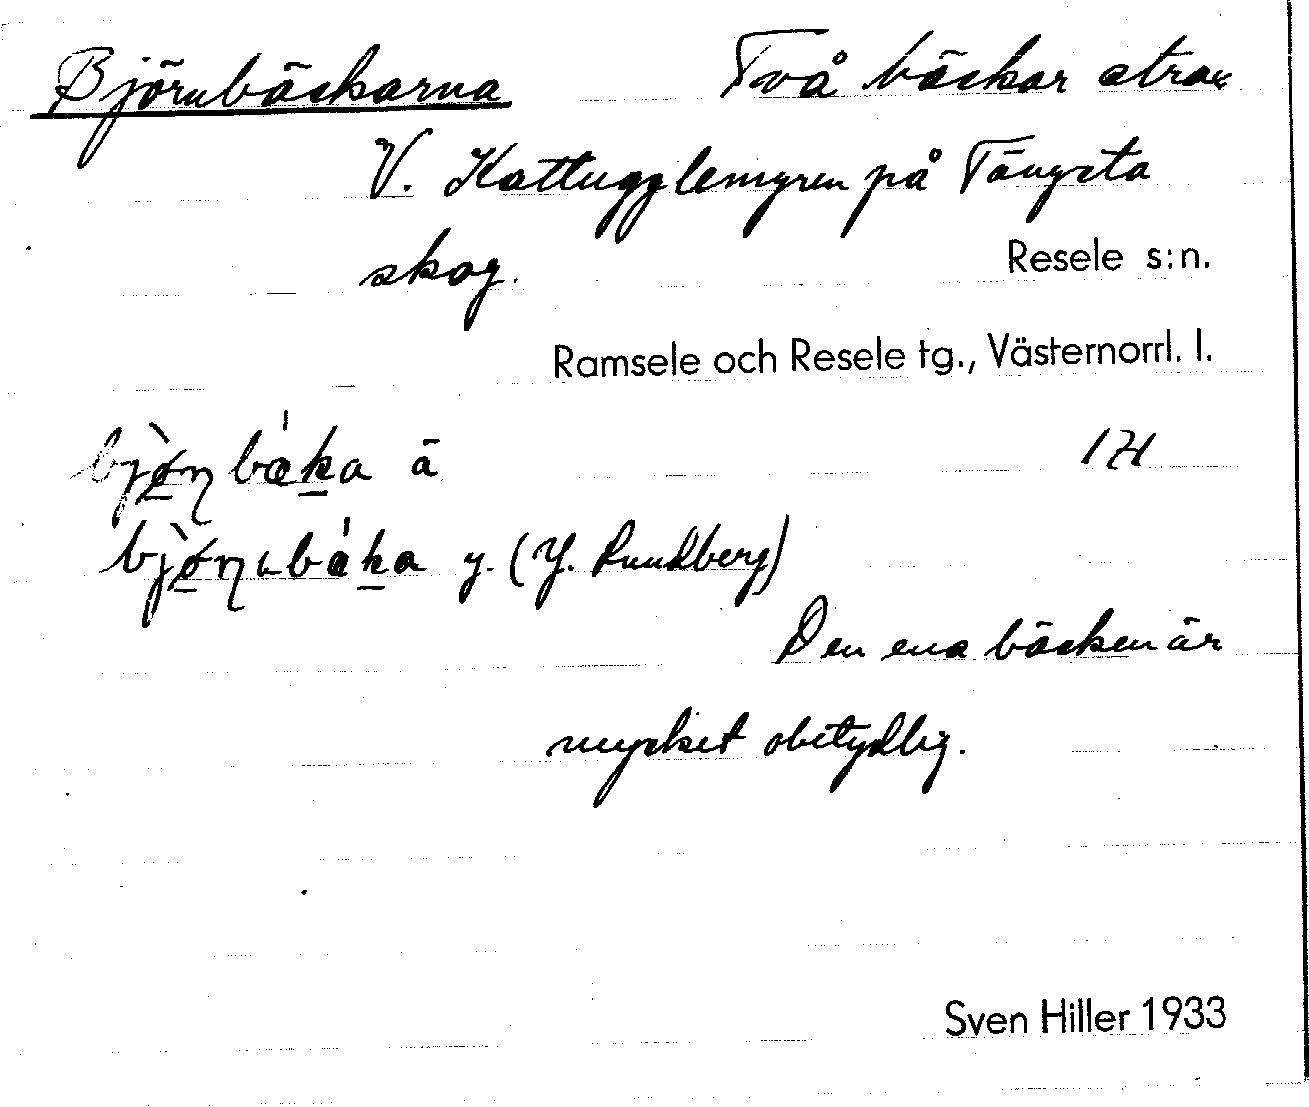 Björnbäckarna Två bäckar strax
V. Kattugglemyren på Tängsta
skog. Resele s:n.
Ramsele och Resele tg., Västernorrl. l.
bjø̀ṇbǽka ä
bjø̀ṇbǽka y. (Y. Sundberg)
Den ena bäcken är
mycket obetydlig.
Sven Hiller 1933